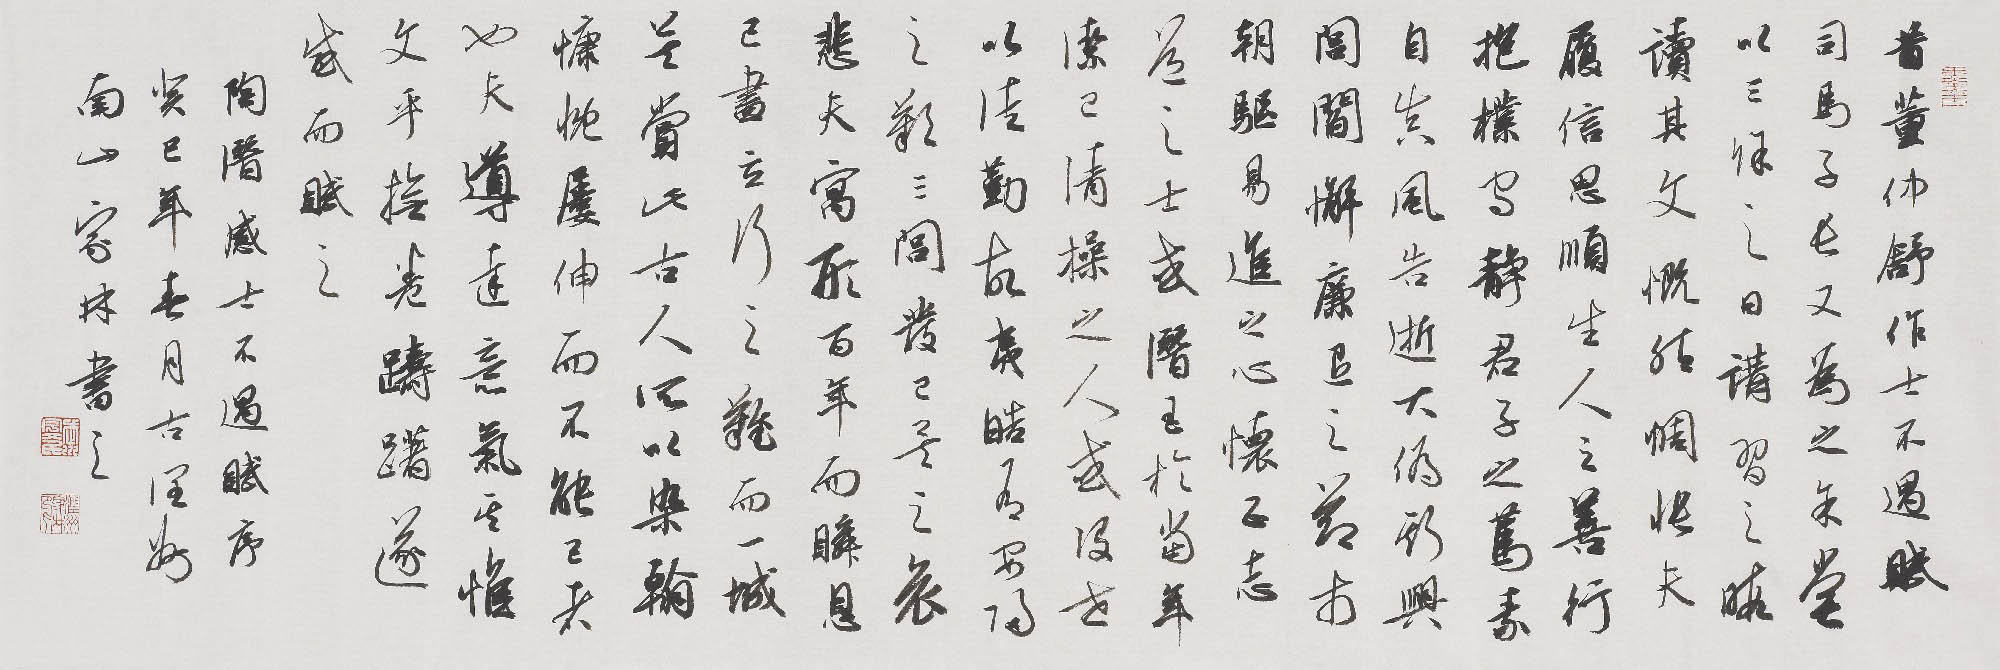 昔董仲舒作士不遇賦
司馬子長又為之余嘗
以三餘之日講習之暇
讀其文慨然惆悵夫
履信思順生人之善行
抱樸守靜君子之篤素
自真風告逝大偽斯興
閭閻懈廉退之節市
朝驅易進之心懷正志
道之士或潛玉於當年
潔己清操之人或沒世
以徒勤故夷皓有安歸
之歎三閭發已矣之哀
悲夫寓形百年而瞬息
已盡立行之難而一城
莫賞此古人所以染翰
慷慨屢伸而不能已者
也夫導達意氣其惟
文乎撫卷躊躇遂
感而賦之
陶潛感士不遇賦序
癸巳年春月古
南山林書之